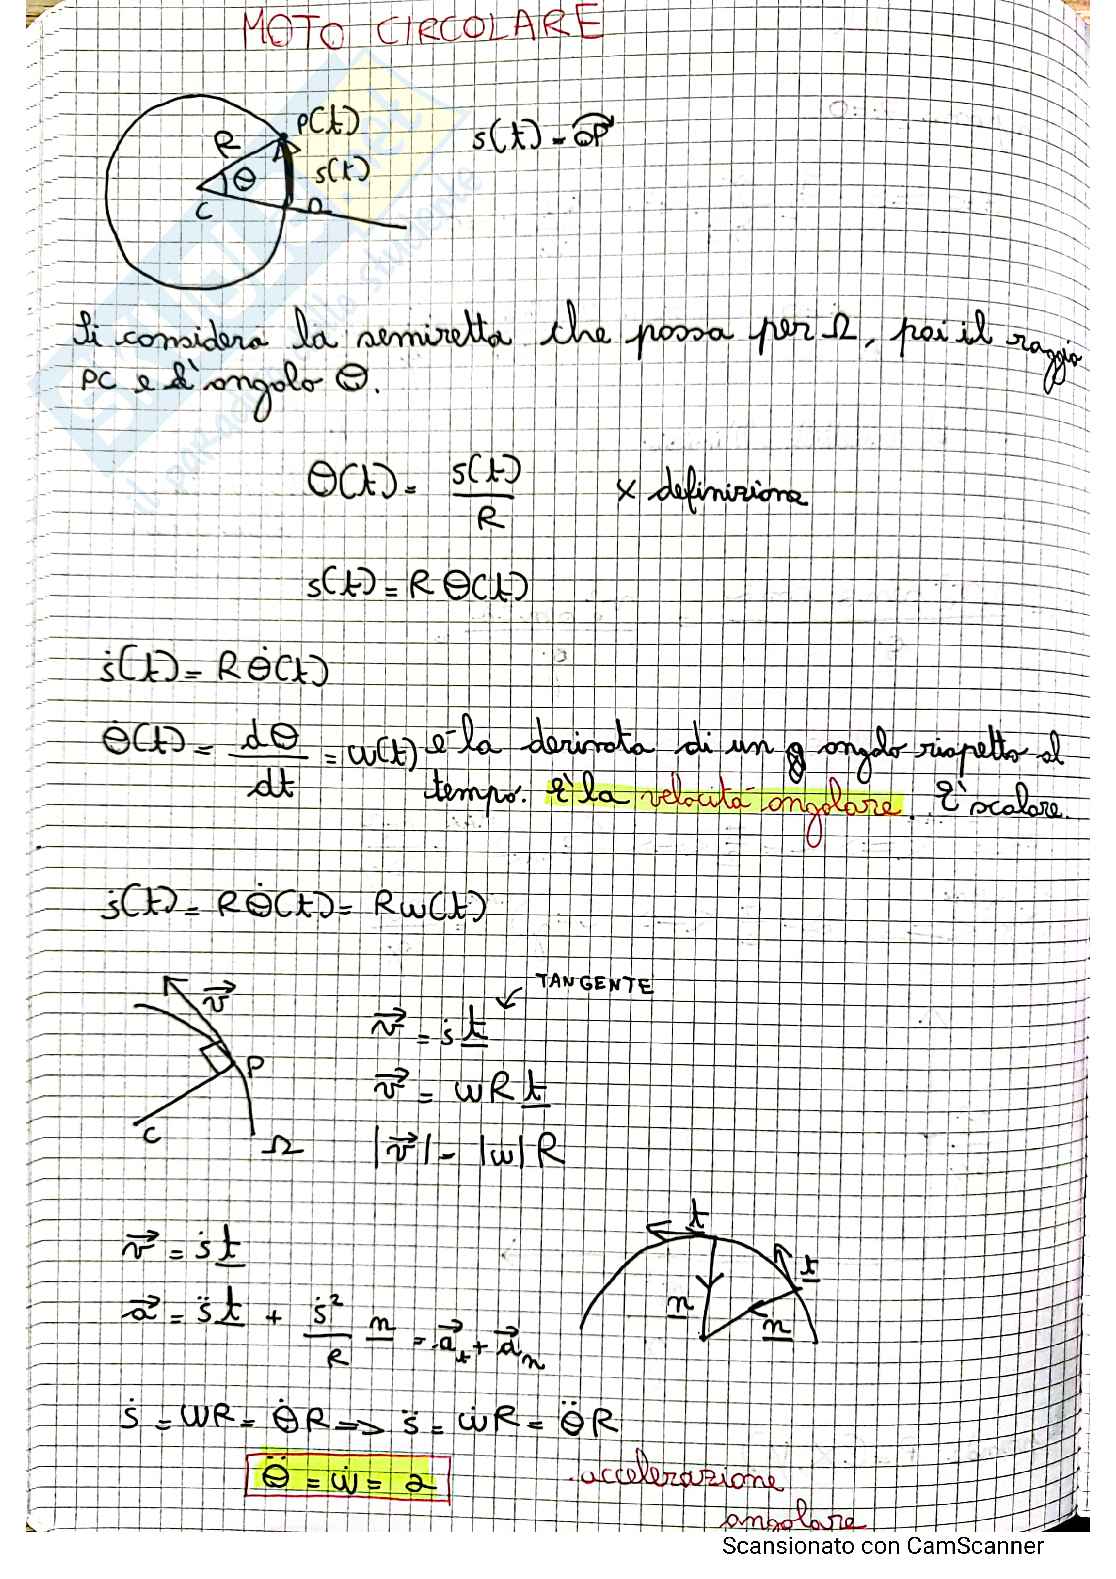 MOTO CIRCOLARE
P(t)
R
s(t) = ΩP
θ
s(t)
C
Ω
Si considera la semiretta che passa per Ω, poi il raggio
PC e l'angolo θ.
θ(t) = s(t)/R x definizione
s(t) = R θ(t)
ṡ(t) = R θ̇(t)
θ̇(t) = dθ/dt = ω(t) è la derivata di un angolo rispetto al
tempo. È la velocità angolare. È scalare.
ṡ(t) = R θ̇(t) = Rω(t)
TANGENTE
v⃗
v⃗ = ṡ t
P
v⃗ = ωR t
C
Ω
|v⃗| = |ω| R
t
v⃗ = ṡ t
t
n
n
a⃗ = s̈ t + ṡ²/R n = a⃗t + a⃗n
ṡ = ωR = θ̇R => s̈ = ω̇R = θ̈R
θ̈ = ω̇ = α accelerazione
angolare
Scansionato con CamScanner